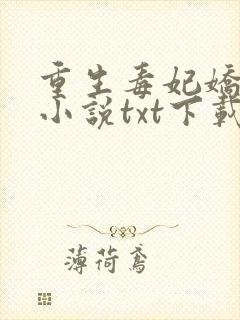 重生毒妃嬌
小說txt下載
薄荷鳶